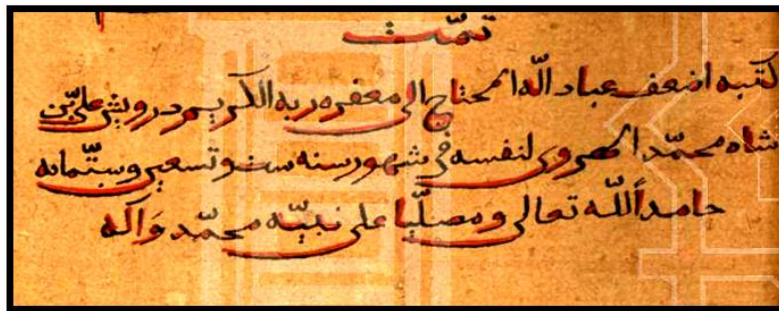 تمّت
كتبه اضعف عباد الله المحتاج الى مغفره ربه الكريم درويش على بن
شاه محمّد الهروى لنفسه فى شهور سنه ست و تسعين و ستّمائه
حامداً لله تعالى و مصلّيا على نبيّه محمّد وآله